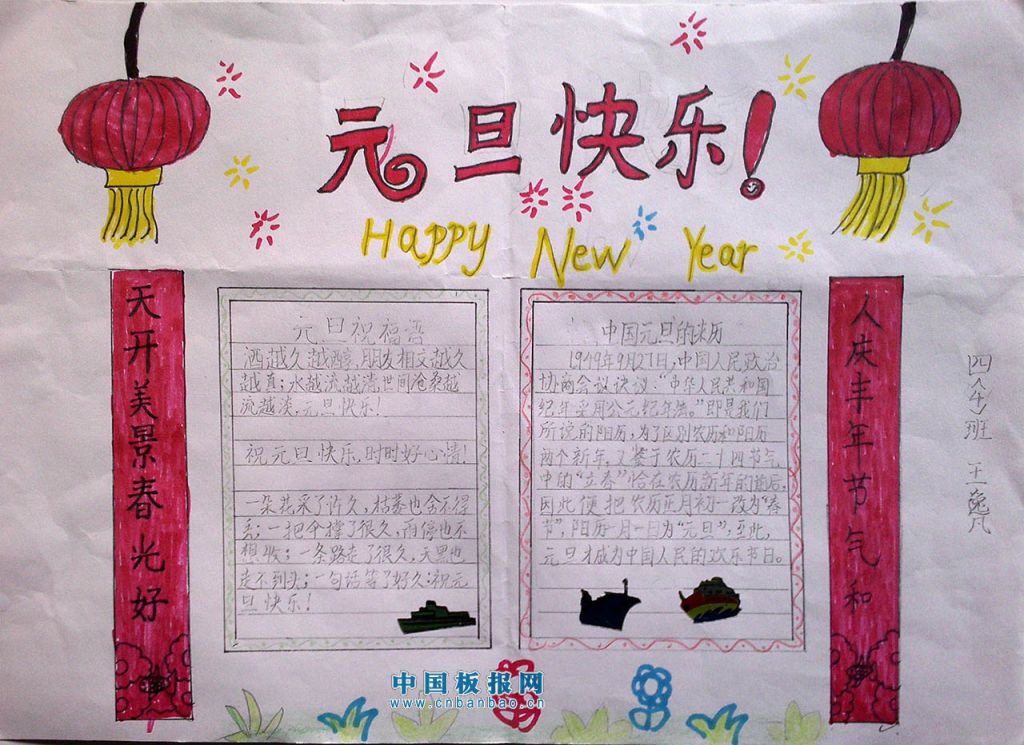 元旦快乐!
Happy New Year
天开美景春光好
元旦祝福语
酒越久越醇,朋友相交越久
越真;水越流越清,世间沧桑越
流越淡。元旦快乐!
祝元旦快乐,时时好心情!
一朵花采了许久,枯萎也舍不得
丢;一把伞撑了很久,雨停也不
想收;一条路走了很久,天黑也
走不到头;一句话等了好久:祝元
旦快乐!
中国元旦的来历
1949年9月27日,中国人民政治
协商会议决议:“中华人民共和国
纪年采用公元纪年法。”即是我们
所说的阳历,为了区别农历和阳历
两个新年,又鉴于农历二十四节气
中的“立春”恰在农历新年的前后,
因此便把农历正月初一改为“春
节”,阳历一月一日为“元旦”,至此,
元旦才成为中国人民的欢乐节日。
人庆丰年节气和
四(4)班 王逸凡
中国板报网
www.cnbanbao.cn